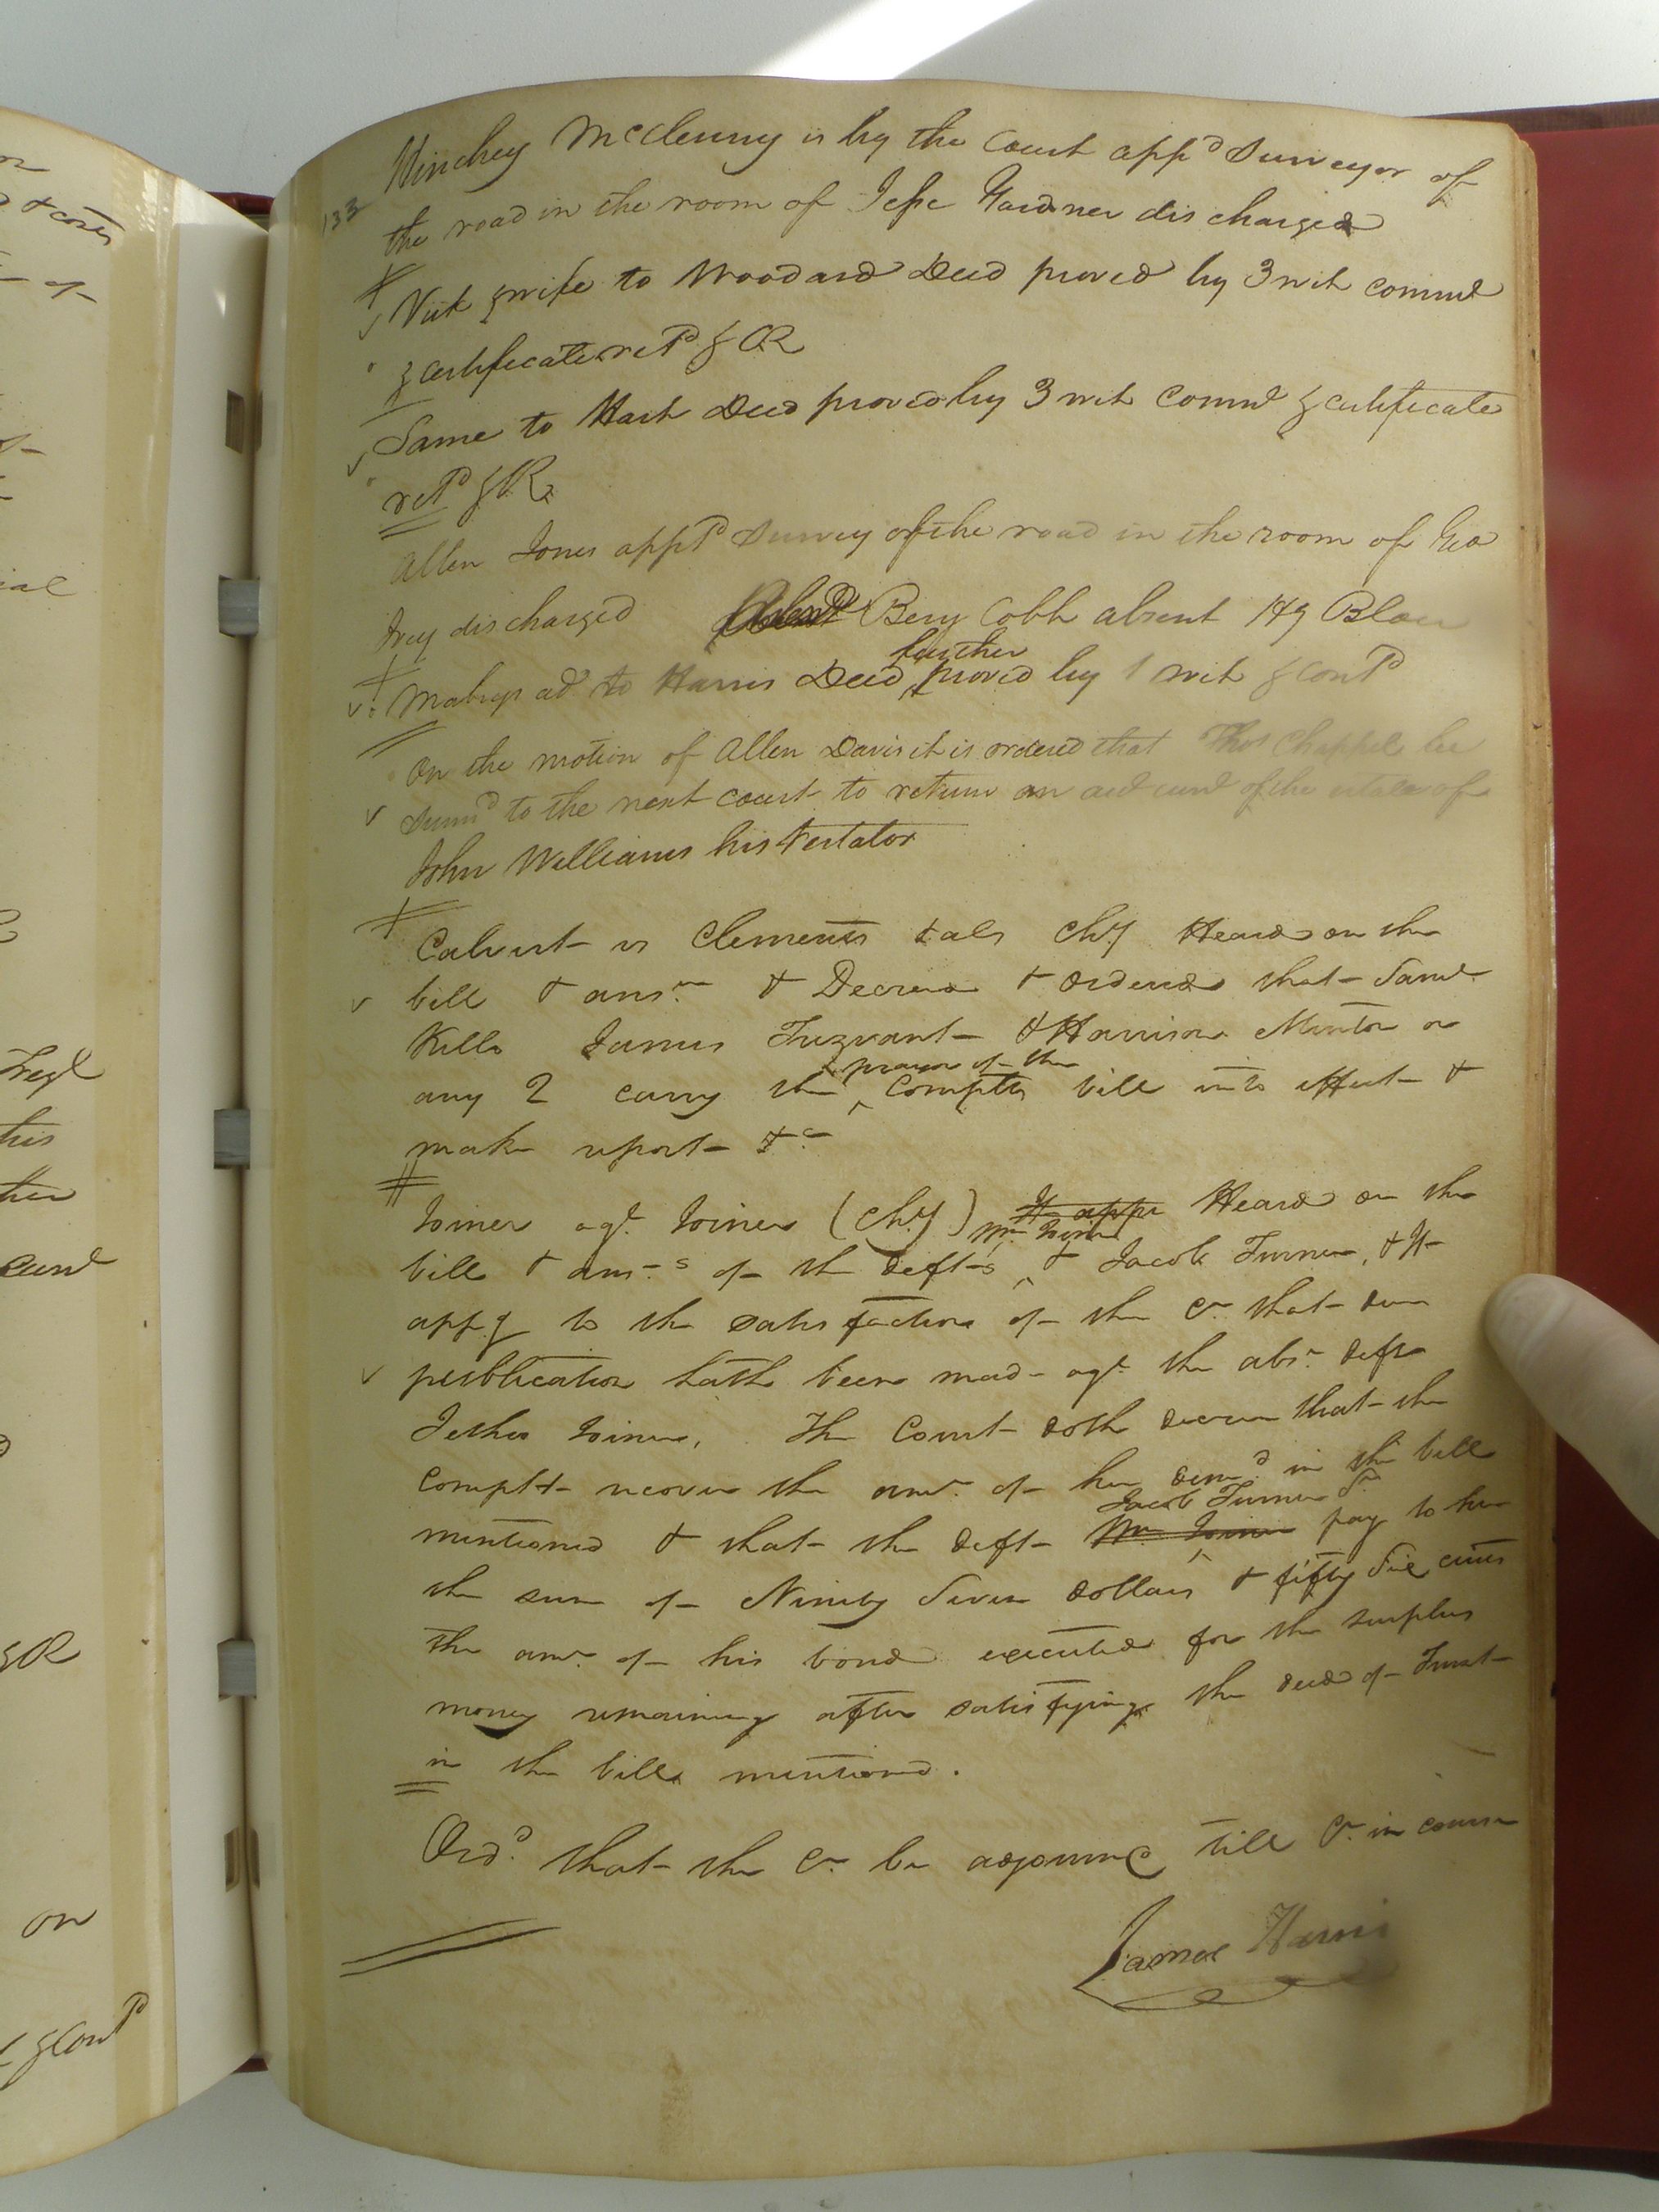 133
Hinchey McClenny is by the Court appd Surveyor of
the road in the room of Jesse Gardner discharged
Vick & wife to Woodard Deed proved by 3 wit comn
& certificate retd & OR
Same to Hart Deed proved by 3 wit Comn & certificate
retd & R
Allen Jones apptd Survey of the road in the room of Geo
Ivey discharged Benj Cobb absent Hy Blow
Mabrys ad to Harris Deed further proved by 1 wit & contd
On the motion of Allen Davis it is ordered that Thos Chappel be
Sumd to the next Court to return an of the estate of
John Williams his testator
Calvert vs Clements & als Chy Heard on the
bill & ansr & Decree & ordered that Saml
Kello James Trezvant & Harrison Minton or
any 2 carry the prayer of the Complts bill into effect &
make report &c
Joiner agt Joiner (Chy) It appr Heard on the
bill & ans.s of the defts Wm Joiner & Jacob Turner, & It
appg to the satisfaction of the Ct that due
publication hath been made agt the abst deft
Jethro Joiner, The Court doth decree that the
Complt recover the amt of her demd in the bill
mentioned & that the deft Wm Joiner Jacob Turner pay to her
the sum of Ninety Seven dollars & fifty Six cents
the amt of his bond executed for the surplus
money remaining after satisfying the deed of Trust
in the bill mentioned.
Ord. that the Ct be adjourned till Ct in course
James Harris
on
& Contd